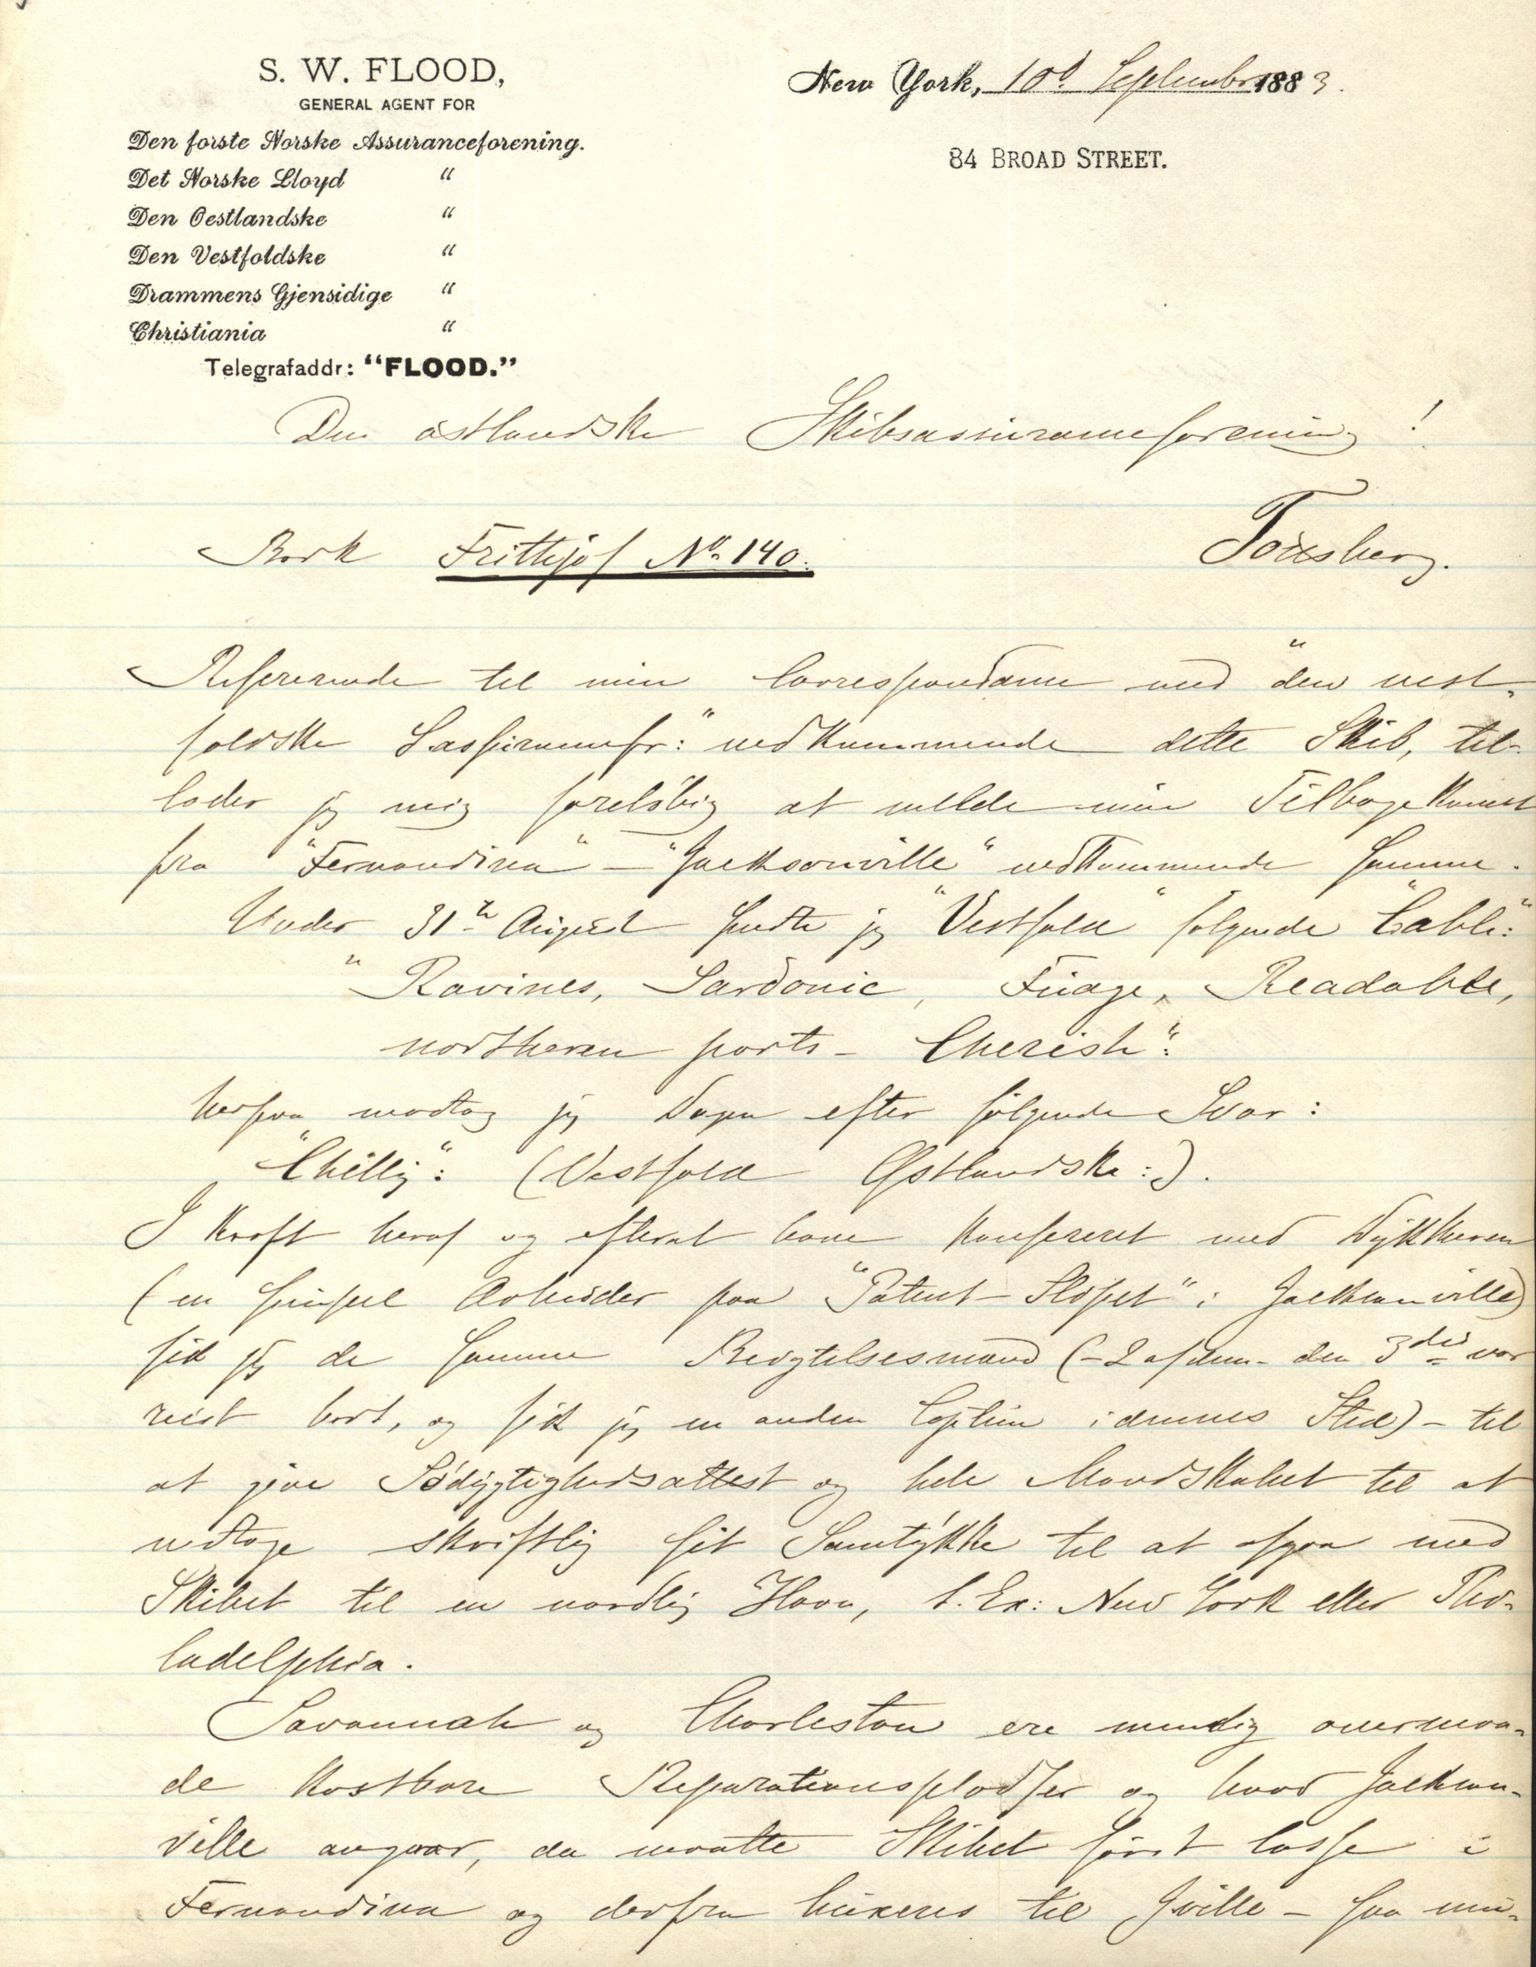 S. W. FLOOD,
GENERAL AGENT FOR
Den forste Norske Assuranceforening.
Det Norske Lloyd "
Den Oestlandske "
Den Vestfoldske "
Drammens Gjensidige "
Christiania "
Telegrafaddr: "FLOOD."
New York, 10d September 1883.
84 BROAD STREET.
Den östlandske Skibsassuranceforening!
Bark Frithjof No. 140.
Tönsberg.
Refererende til min Correspondance med "den vest-
foldske Sassurancefr:" vedkommende dette Skib, til-
lader jeg mig foreløbig at melde min Tilbagekomst
fra "Fernandina" - "Jacksonville" vedkommende samme.
Under 31te August sendte jeg "Vestfold" følgende "Cable:"
"Ravines, Sardonic, Fuage, Readable,
northeren ports - Cherish":
herpaa modtog jeg Dagen efter følgende Svar:
"Chilly": (Vestfold Østlandske:).
I Kraft heraf og efterat have konfereret med Dykkeren
(en simpel Arbeider paa "Patent-Slipet" i Jacksonville)
fik jeg de samme Besigtelsesmænd (-2 af dem- den 3die var
reist bort, og fik jeg en anden Captein i dennes Sted) - til
at give Sødygtighedsattest og hele Mandskabet til at
vedtage skriftlig sit Samtykke til at afgaa med
Skibet til en nordlig Havn, t. Ex: New York eller Phi-
ladelphia.
Savannah og Charleston ere nemlig overmaa-
de kostbare Reparationspladser og hvad Jackson-
ville angaar, da maatte Skibet først losse i
Fernandina og derfra buxeres til Jville - saa